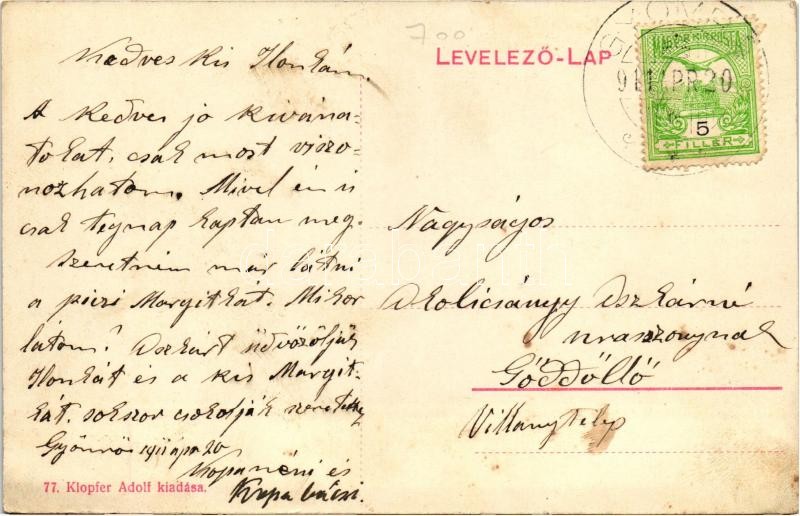 700
LEVELEZŐ-LAP
MAGYAR KIR. POSTA
911 APR 20
5
FILLÉR
Kedves kis Ilonkám
A kedves jo kiváná-
tokat, csak most viszo-
nozhatom. Mivel én is
csak tegnap kaptam meg.
Szeretném már látni
a piczi Margitkát. Mikor
látom? Oszkárt üdvözöljük
Ilonkát és a kis Margit-
kát sokszor csokolják szeretettel
Gyömrő 1911 apr 20
néni és
bácsi.
Nagyságos
Oszkárné
uraszonynak
Gödöllő
Villanytelep
77. Klopfer Adolf kiadása.